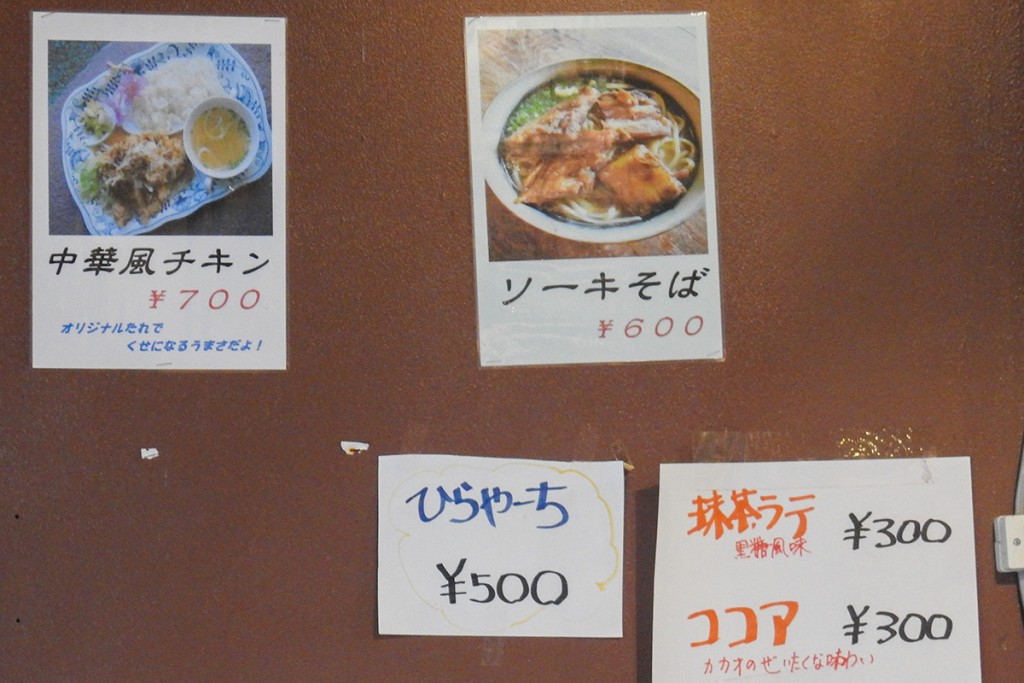 中華風チキン
￥700
オリジナルたれで
くせになるうまさだよ！
ソーキそば
￥600
ひらやーち
¥500
抹茶ラテ ¥300
黒糖風味
ココア ¥300
カカオのぜいたくな味わい